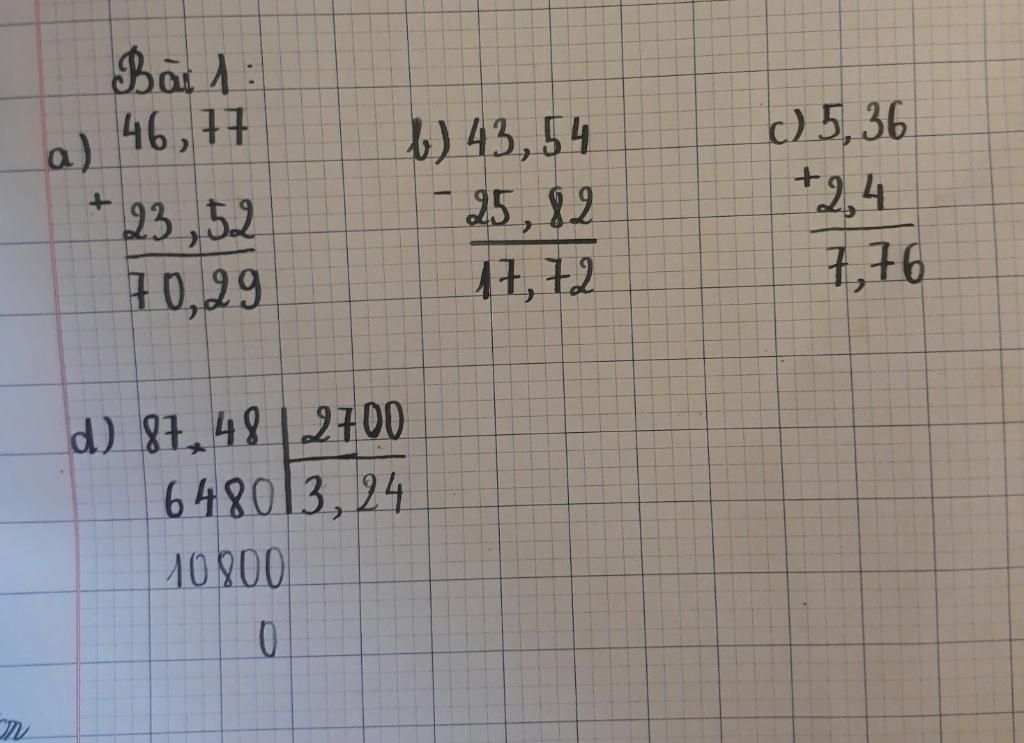 Bài 1:
a) 46,77
+ 23,52
70,29
b) 43,54
- 25,82
17,72
c) 5,36
+ 2,4
7,76
d) 87,48 2700
6480 3,24
10800
0